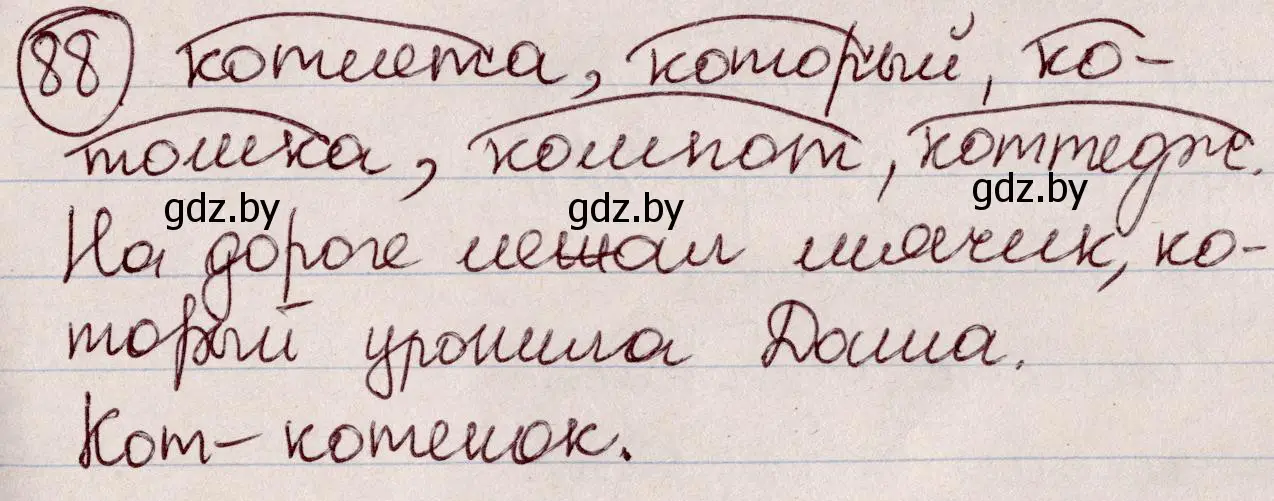 88 котлета, который, ко-
тошка, компот, коттедж.
gdz.by gdz.by gdz.by
На дороге лежал мячик, ко-
торый уронила Даша.
Кот - котенок.